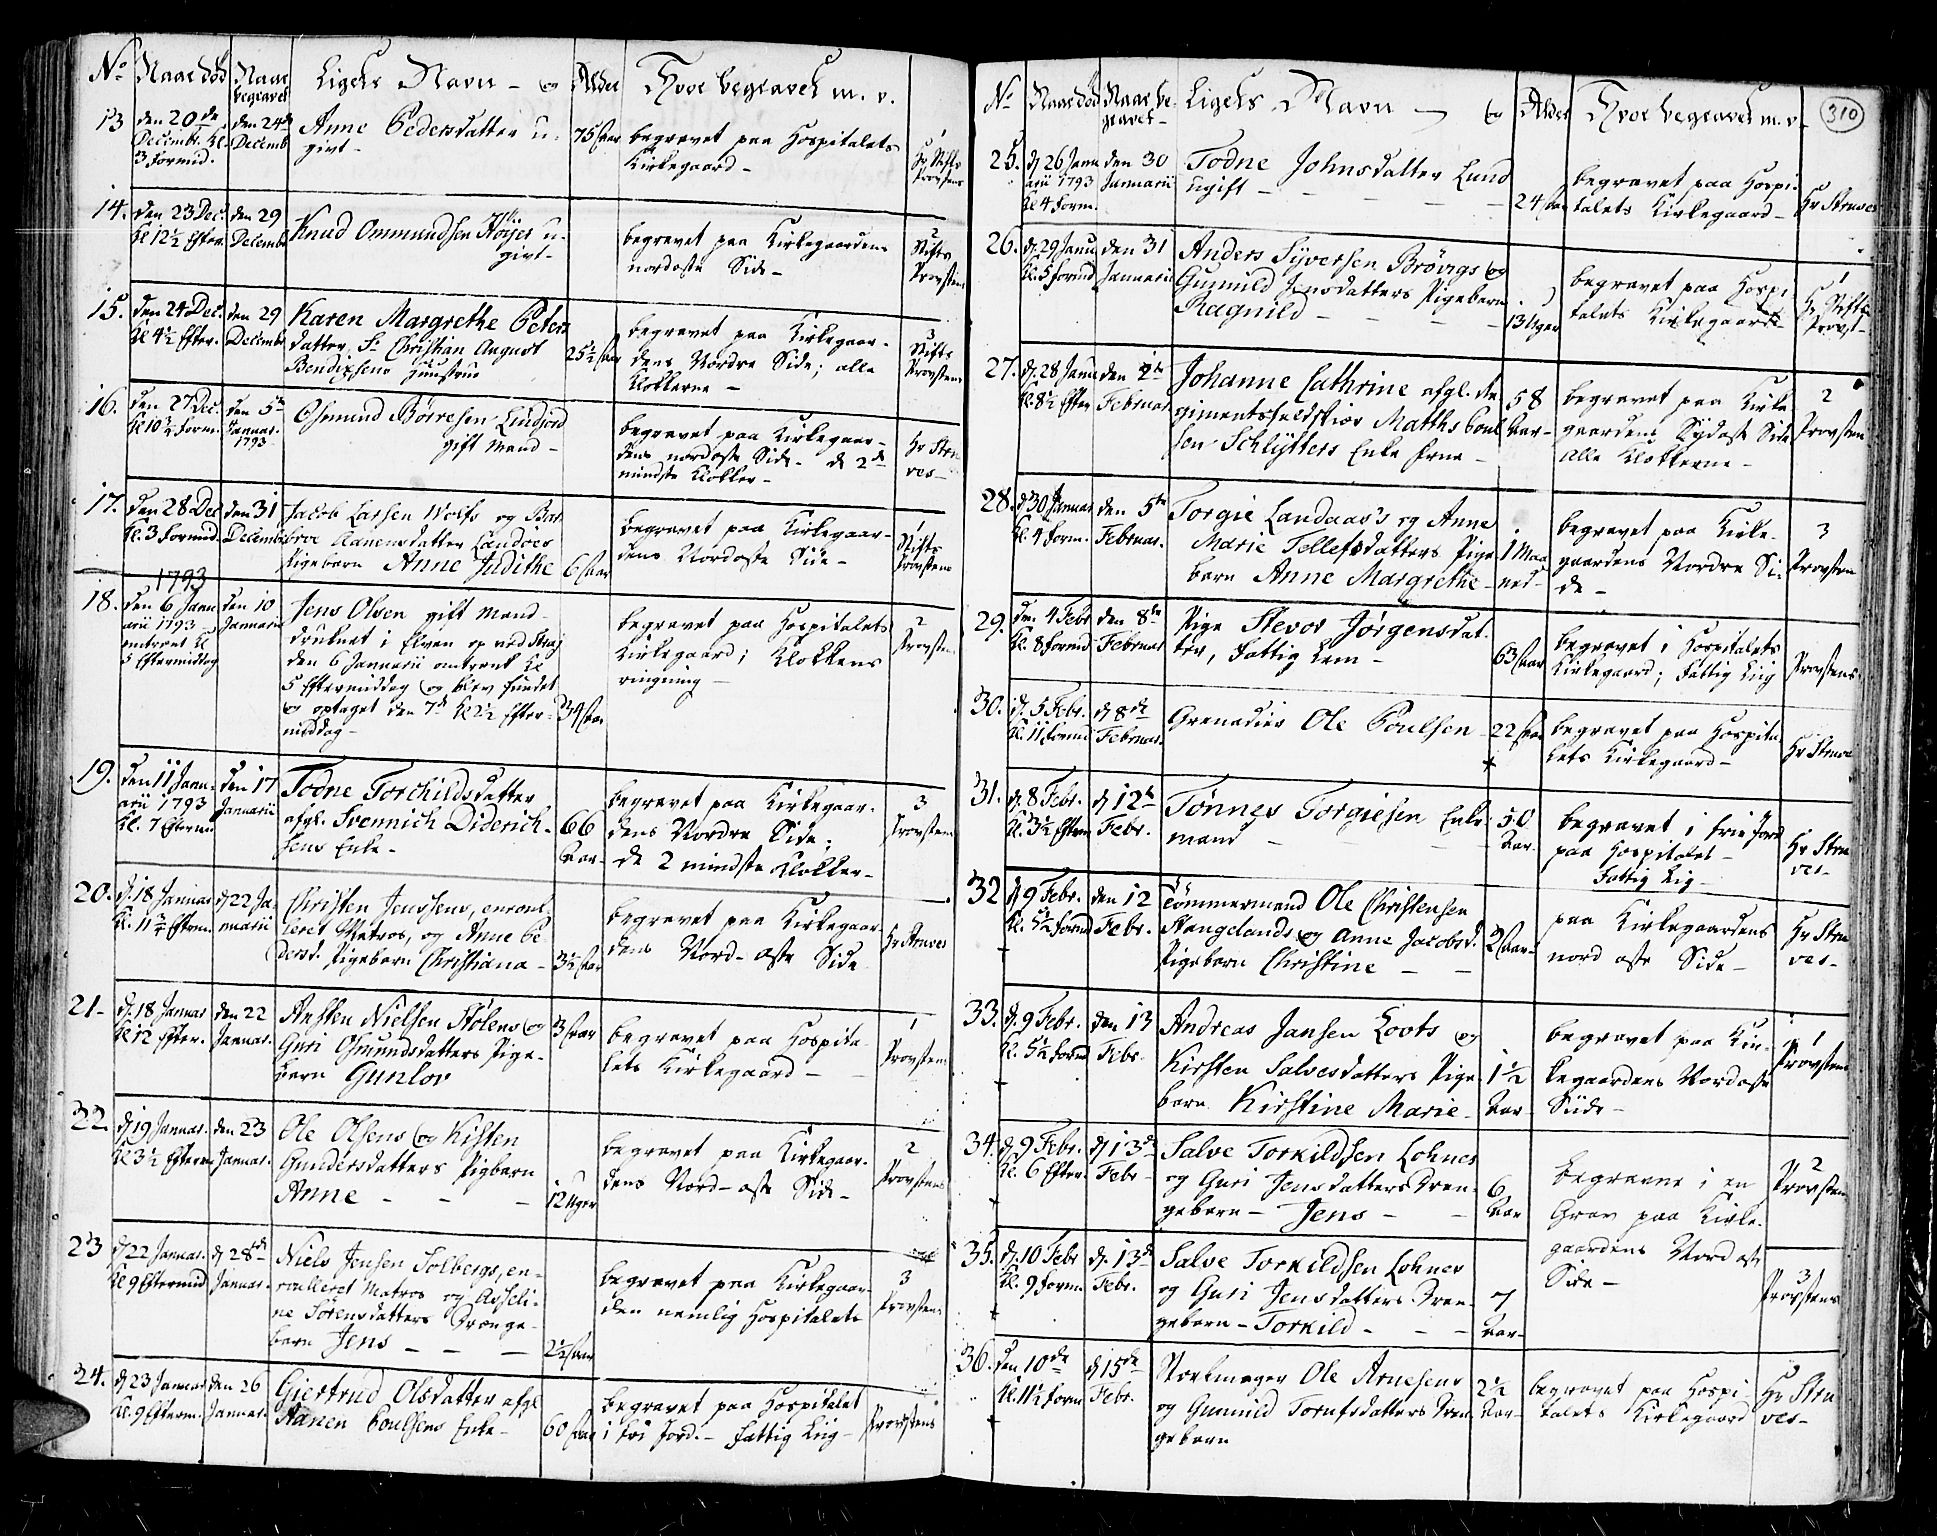 No Naar død Naar begravet Ligets Navn - og Alder Hvor begravet m. v.
13 den 20de Decembr. Kl. 3 Formid. den 24de Decemb Anne Pedersdatter u-
givt - 75 Aar begravet paa Hospitalets
Kirkegaard - 1 Hr Stifts Provstens
14. den 23 Dec. Kl 12½ Efter. den 29 Decembr Knud Ommundsen Høijer u-
givt - begravet paa Kirkegaardens
nordoste Side - 2 Stifts Provstens
15. den 24 Dec. Kl 4½ Efter. den 29 Decembr Karen Margrethe Peters
datter, Sr Christian August
Bendixsens Huustrue 25½ Aar begravet paa Kirkegaar-
dens Nordre Side; alle
Klokkerne - 3 Stifts Provstens
16. den 27 Dec. Kl 10½ Form. den 5te Januar. 1793 Osmund Børresen Lindjord
gift Mand - begravet paa Kirkegaar-
dens nordoste Side - de 2de
mindste Klokker - Hr Stru
ves -
17. den 28 Dec Kl. 3 Formid. den 31 Decembr Jacob Larsen Wolfs og Bar
broe Aanensdatter Landoes
Pigebarn Anne Judithe 6 Aar begravet paa Kirkegaar-
dens Nordoste Side - 1 Stifts Provstens
1793
18. den 6 Janu
arii 1793
omtrent Kl
5 Eftermiddag den 10 Januarii Jens Olsen gift Mand
druknet i Elven op ved
den 6 Januarii omtrent Kl
5 Eftermiddag og blev fundet
og optaget den 7de Kl 2½ Efter-
middag - 34 Aar begravet paa Hospitalets
Kirkegaard; Klokkens
ringning - 2 Provstens
19. den 11 Janu-
arii 1793
Kl. 7 Efterm den 17 Januarii Todne Torchildsdatter
afgl. Svennich Diderich-
sens Enke - 66 Aar - begravet paa Kirkegaar-
dens Nordre Side;
de 2 mindste Klokker - 3 Provstens
20. d. 18 Januar Kl. 11½ Efterm d. 22 Ja-
nuarii Christen Jenssens, enroul
leret Matros, og Anne Pe
dersd. Pigebarn Christiana - 3½ Aar begravet paa Kirkegaar
dens Nord-oste Side Hr Struves
21 - d. 18 Januar Kl 12 Efter. den 22 Januar. Ansten Nielsen Stolens og
Guri Osmundsdatters Pige-
barn Gunlov 3 Aar begravet paa Hospita-
lets Kirkegaard - 1 Provstens
22. d. 19 Januar. Kl 3½ Efterm. den 23 Januar. Ole Olsens og Kisten
Gundersdatters Pigbarn
Anne - - - 12 Uger begravet paa Kirkegaar-
dens Nord-oste Side - 2 Provstens
23 d. 22 Januar. Kl 9 Eftermid d. 28de Januar. Niels Jensen Solbergs, en-
roulleret Matros og Asseli-
ne Sørensdatters Drenge-
barn Jens - - - 2½ Aar begravet paa Kirkegaar
den nemlig Hospitalets 3 Provstens
24. d. 23 Januar Kl. 9 Efterm. den 26 Januar. Giertrud Olsdatter afgl
Aanen Poulsens Enke - 60 Aar begravet paa Hospitalet
i fri Jord. - Fattig Liig - Provstens
310
No Naar død Naar be-
gravet - Ligets Navn - og Alder Hvor begravet m. v.
25. d. 26 Janu
arii 1793
Kl 4 Form. den 30 Januarii Todne Johnsdatter Lund
ugift - - - - 24 Aar begravet paa Hospi-
talets Kirkegaard - Hr Struves
26. d. 29 Janu Kl. 5 Formd den 31 Januarii Anders Syversen Brøvigs og
Gunnild Jensdatters Pigebarn
Ragnild - - - - 13 Uger begravet paa Hospi
talets Kirkegaard - 1 Hr Stifts
Provst -
27. d. 28 Janu Kl. 8½ Efter den 1te Februar Johanne Cathrine afgl. Re
gimentsfeldskier Matths Poul
sen Schlytters Enke Frue - 58 Aar - begravet paa Kirke
gaardens Sydoste Side
Alle Klokkerne - 2 Provstens
28. d 30 Januar Kl. 4 Form. den 5te Februar. Torgie Landaas's og Anne
Marie Tellefsdatters Pige
barn Anne Margrethe - 1 Maa
ned - begravet paa Kirke-
gaardens Nordre Si-
de - 3 Provstens
29. den 4 Febr Kl. 8 Formd den 8te Februar Pige Stevor Jørgensdat-
ter, Fattig Lem - 63 Aar begravet i Hospitalets
Kirkegaard; Fattig Liig Provstens
30. d. 5 Febr. Kl. 11 Formd d 8de Februar. Grenadier Ole Poulsen 22 Aar begravet paa Hospita
lets Kirkegaard - Hr Struve
31. d. 8 Febr. Kl. 3½ Efterm d 12te Febr. Tønnes Torgiesen Enke-
mand - - - - 50 Aar - begravet i frie Jord
paa Hospitalet -
Fattig Lig - Hr Stru
ves -
32 d 9 Febr. Kl. 5½ Formd den 12 Febr. Tømmermand Ole Christensen
Stangelands og Anne Jacobsd.
Pigebarn Christine - - 2 Aar - paa Kirkegaardens
nord oste Side - Hr Stru
ves -
33. d. 9 Febr. Kl. 5½ Formd den 13 Febr. Andreas Jansen Loots og
Kirsten Salvesdatters Pige
barn Kirstine Marie - 1½ Aar - begravet paa Kir-
kegaardens Nordoste
Side - 1 Provstens
34. d. 9 Febr. Kl. 6 Efter. d 13de Febr - Salve Torkildsen Lohnes
og Guri Jensdatters Dren-
gebarn - Jens - - 6 Aar begravne i en
Grav paa Kirke-
gaardens Nordoste
Side - 2 Provstens
35. d. 10 Febr Kl. 9 Form d. 13de Febr. Salve Torkildsen Lohnes
og Guri Jensdatters Dren-
gebarn - Torkild - - - 7 Aar - 3 Provstens
36. den 10de Kl. 11½ Form d 15de Febr. Ole Arnesens
og Gunnild Dren
gebarn 2½ Aar - begravet paa Hospi-
talets Kirkegaard Hr Stru
ves -